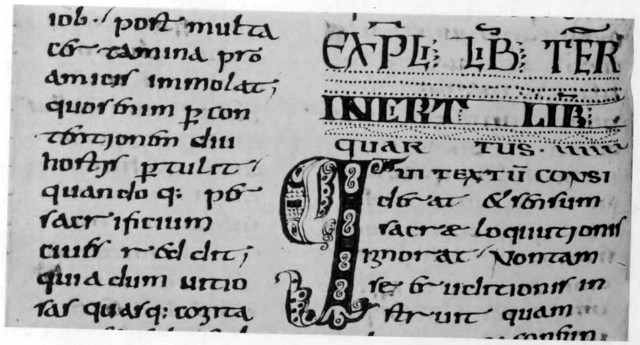 iob; post multa
certamina pro
amicis immolat;
quos enim p con
tentionem diu
hostes ptulit;
quando q: per
sacrificium
ciues reddit;
quia dum uitio
sas quasq: cogita
EXPLĪ: LIB̄: TER̄
INCIPT LIB̄
QUARTUS· IIII
Qui TEXTŪ CONSI
derat & sensum
sacrae loquutionis
ignorat· Nontam
se eruditionis in
struit quam